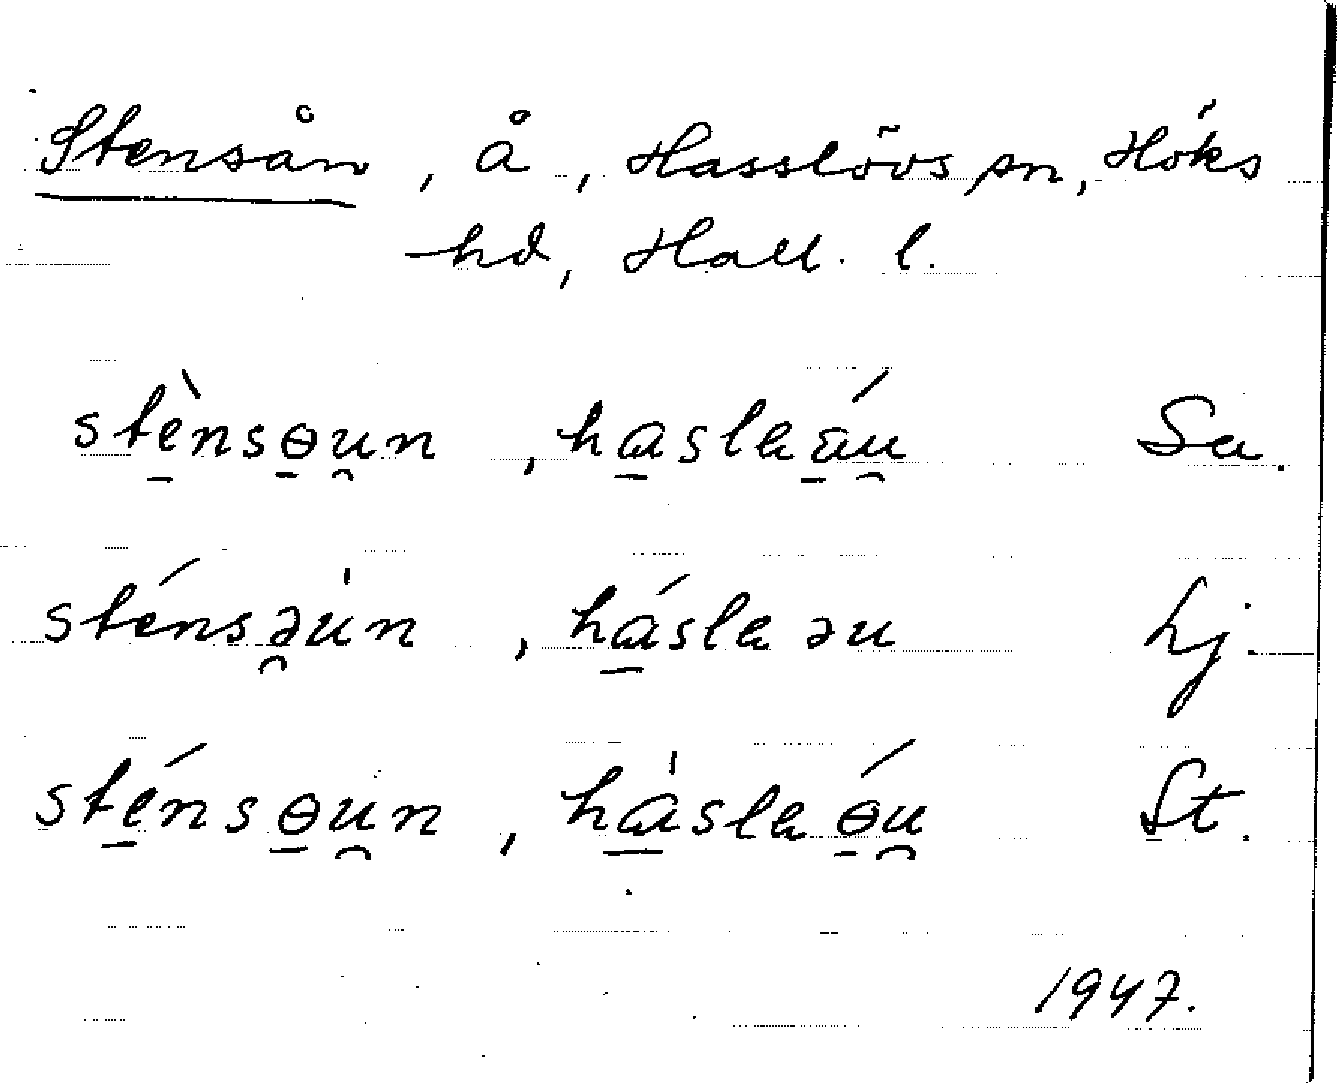 Stensån, å, Hasslövs sn, Höks
hd, Hall. l.
stè̠nsɵ̠u̯n, ha̠slaa̠úu̯ Sa.
sténsə̯u̍n, há̠slaəu Lj.
sté̠nsɵ̠u̯n, ha̠̍slaɵ̠́u̯ St.
1947.